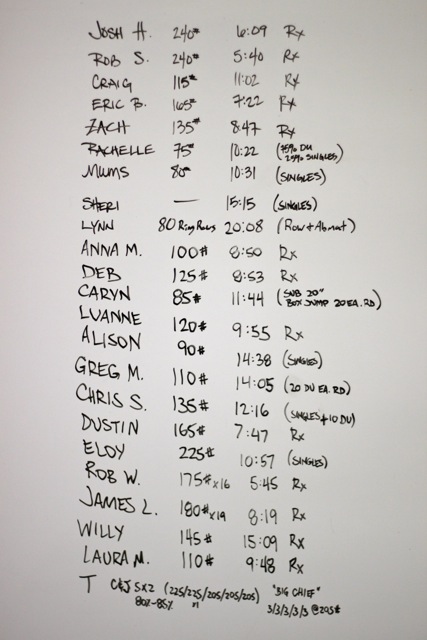 JOSH H. 240# 6:09 Rx
ROB S. 240# 5:40 Rx
CRAIG 115# 11:02 Rx
ERIC B. 165# 7:22 Rx
ZACH 135# 8:47 Rx
RACHELLE 75# 10:22 (75% DU 25% SINGLES)
MUMS 80# 10:31 (SINGLES)
SHERI — 15:15 (SINGLES)
LYNN 80 Ring Rows 20:08 (Row + Abmat)
ANNA M. 100# 8:50 Rx
DEB 125# 8:53 Rx
CARYN 85# 11:44 (SUB 20" BOX JUMP 20 EA. RD)
LUANNE 120# 9:55 Rx
ALISON 90# 14:38 (SINGLES)
GREG M. 110# 14:05 (20 DU EA. RD)
CHRIS S. 135# 12:16 (SINGLES + 10 DU)
DUSTIN 165# 7:47 Rx
ELOY 225# 10:57 (SINGLES)
ROB W. 175# x16 5:45 Rx
JAMES L. 180# x19 8:19 Rx
WILLY 145# 15:09 Rx
LAURA M. 110# 9:48 Rx
T C&J 5x2 (225/225/205/205/205) "BIG CHIEF"
80%-85% x1 3/3/3/3/3 @205#